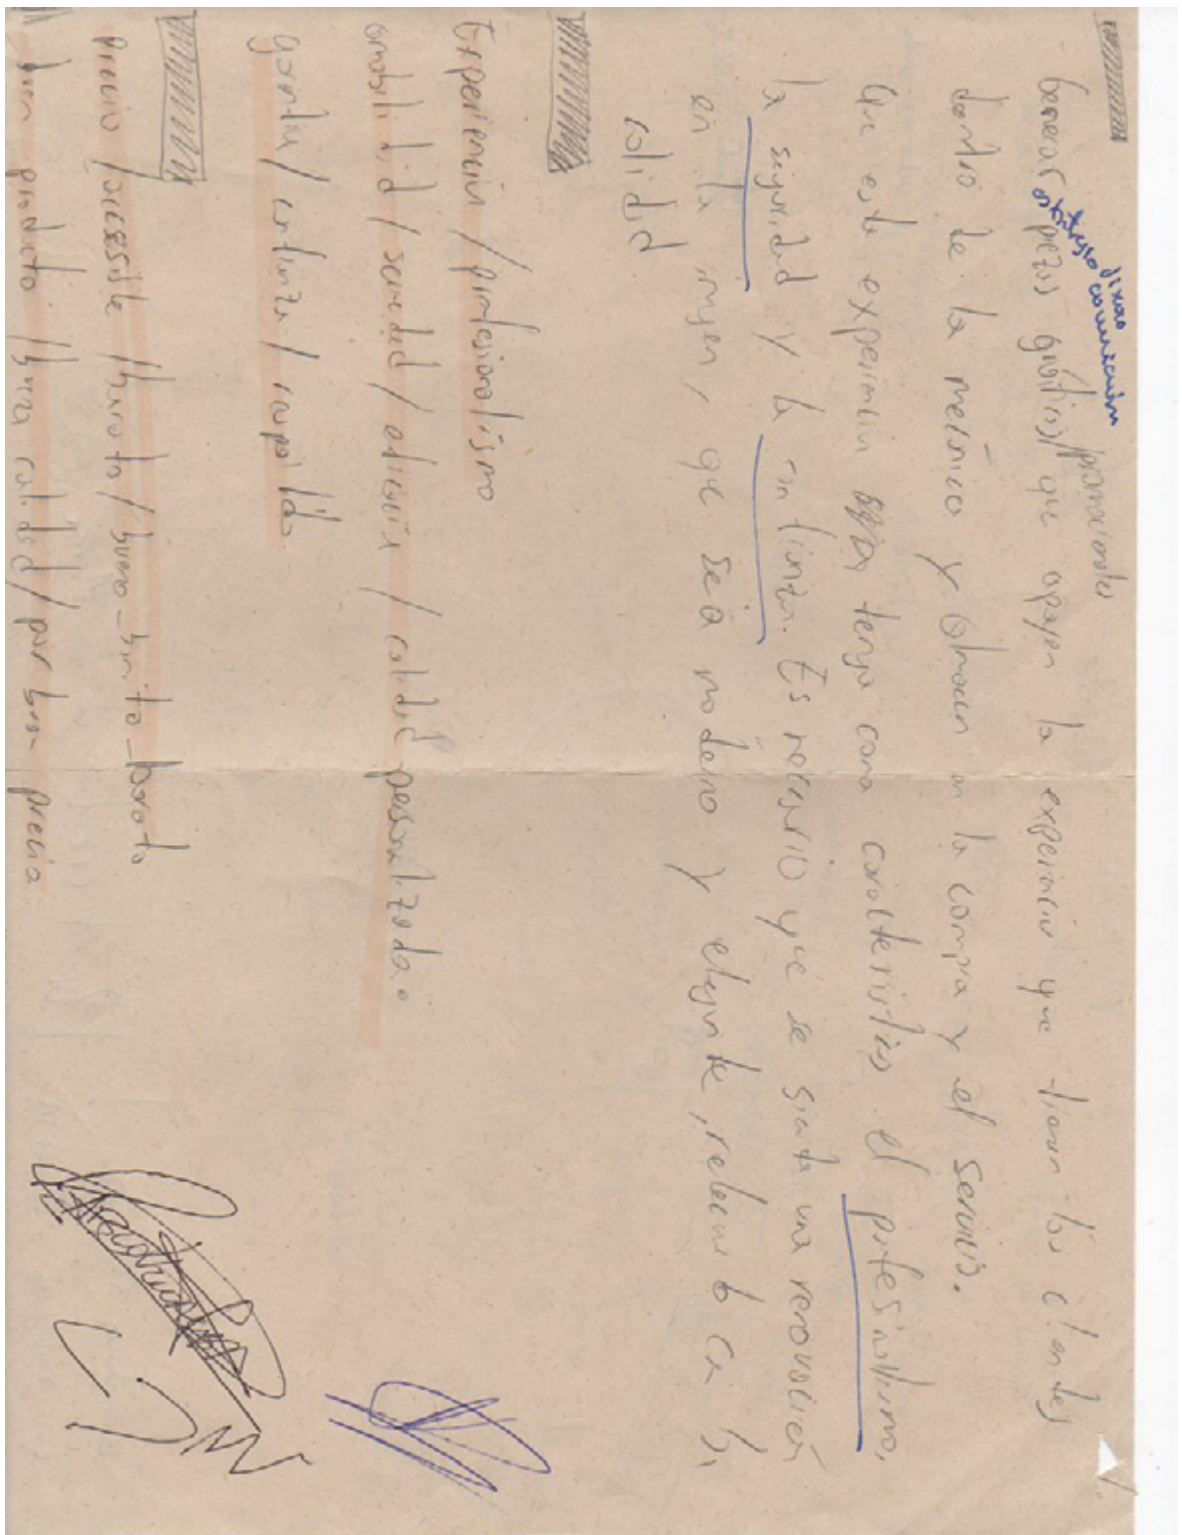 dixao comunicación
estratégico
promocionales
Generar piezas gráficas que apoyen la experiencia que tienen los clientes
dentro de la mecánica y obtienen en la compra y el servicio.
Que esta experiencia tenga como características el profesionalismo,
la seguridad y la confianza. Es necesario que se sienta una renovación
en la imagen, que sea moderno y elegante, relacionado con la
calidad
Experiencia / profesionalismo
amabilidad / seriedad / eficacia / calidad personalizada.
garantía / confianza / respaldo.
Precio / accesible / barato / bueno_bonito_barato
buen producto / buena calidad / por buen precio